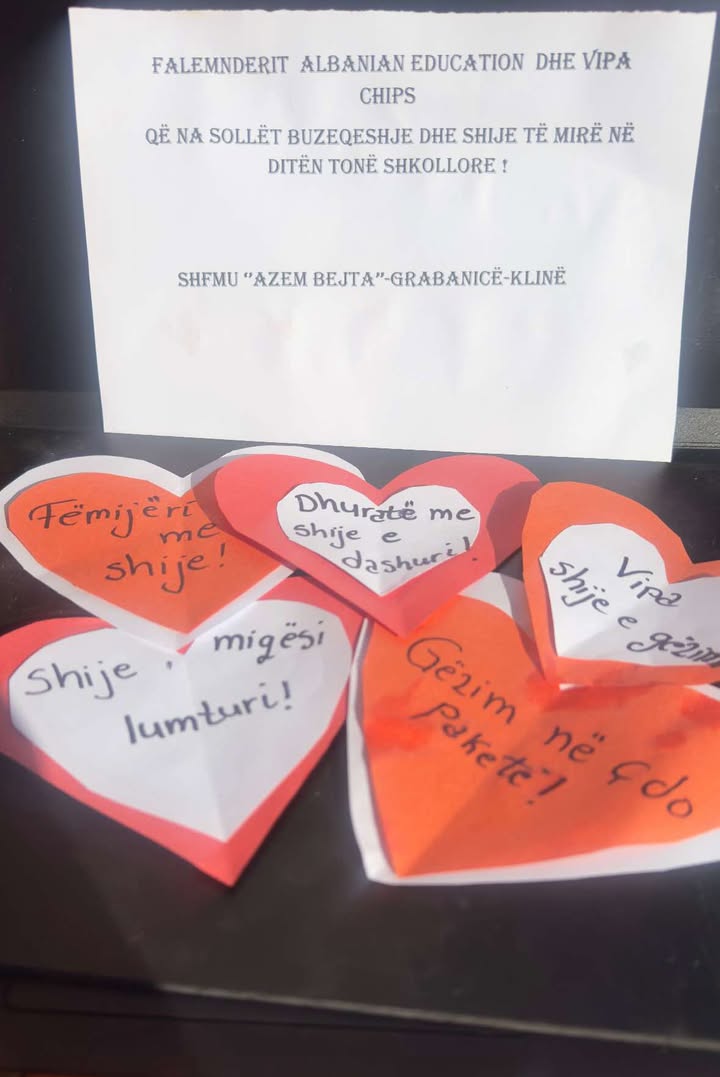 FALEMNDERIT ALBANIAN EDUCATION DHE VIPA
CHIPS
QË NA SOLLËT BUZEQESHJE DHE SHIJE TË MIRË NË
DITËN TONË SHKOLLORE !
SHFMU "AZEM BEJTA"-GRABANICË-KLINË
Fëmijëri
me
shije!
Dhuratë me
shije e
dashuri!
Vipa
shije e gëzim
Shije , miqësi
lumturi!
Gëzim në çdo
paketë!